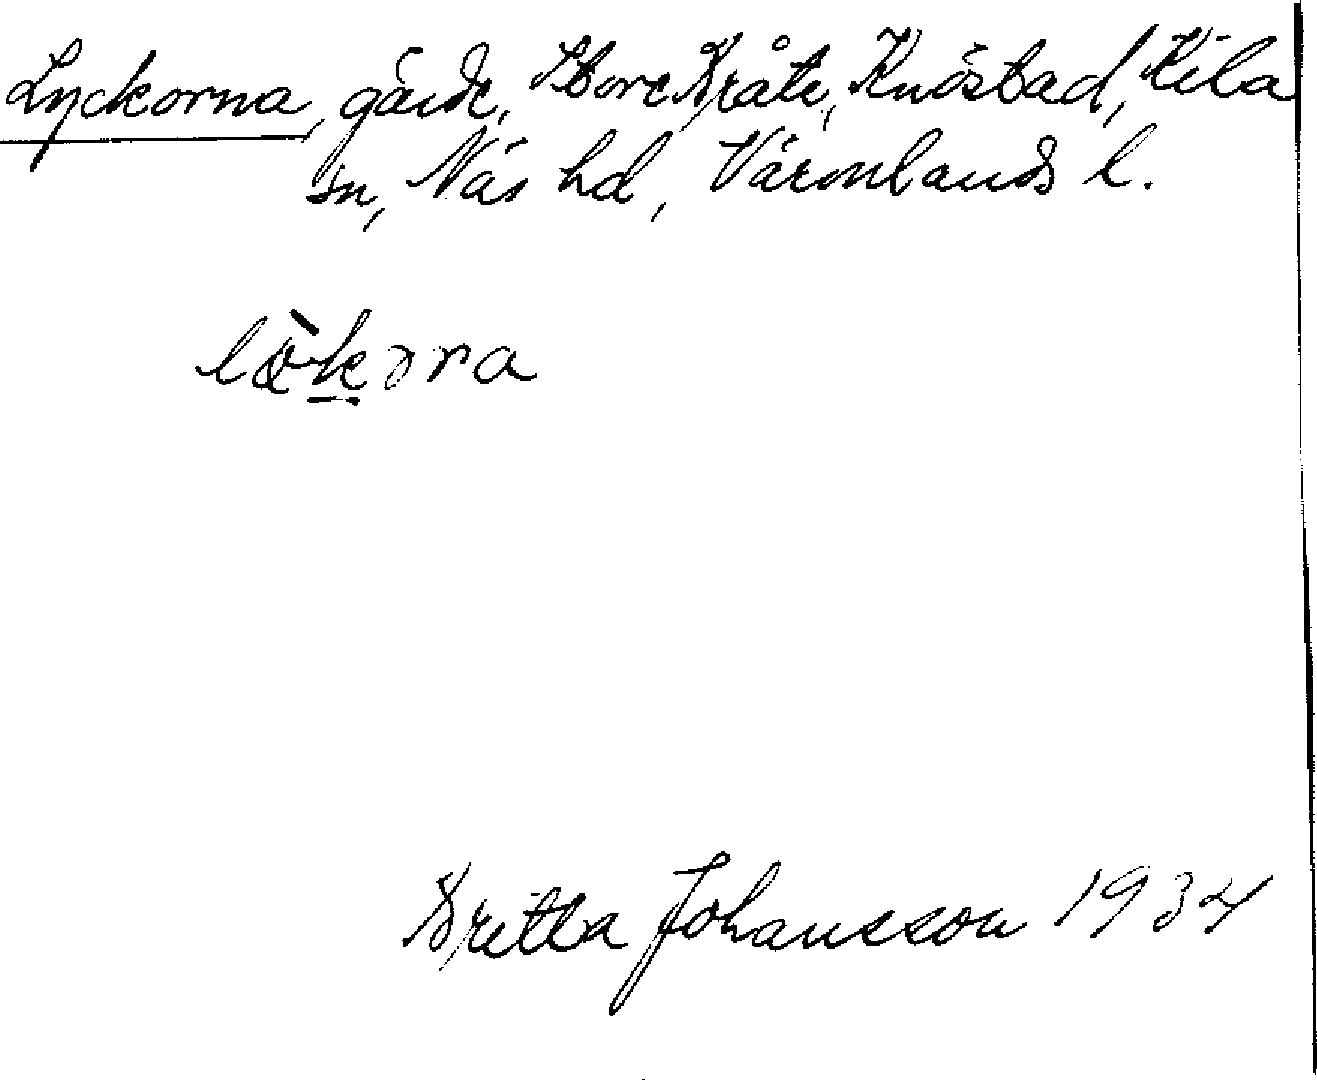 Lyckorna, gärde, Store Bråte, Knöstad, Kila
sn, Näs hd, Värmlands l.
lö̀kₒra
Britta Johansson 1934